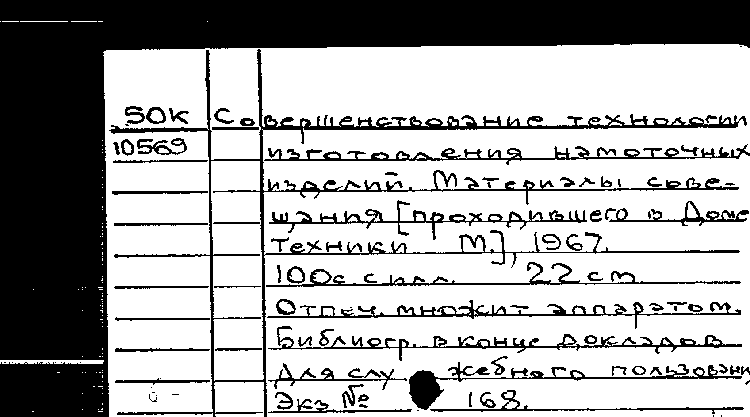 50К Совершенствование технологии
10569 изготовления намоточных
изделий. Материалы сове-
щания [проходившего в Доме
Техники М.], 1967.
100с. с илл. 22 см
Отпеч. множит аппаратом.
Библиогр. в конце докладов
Для служебного пользовани
Экз № 168.